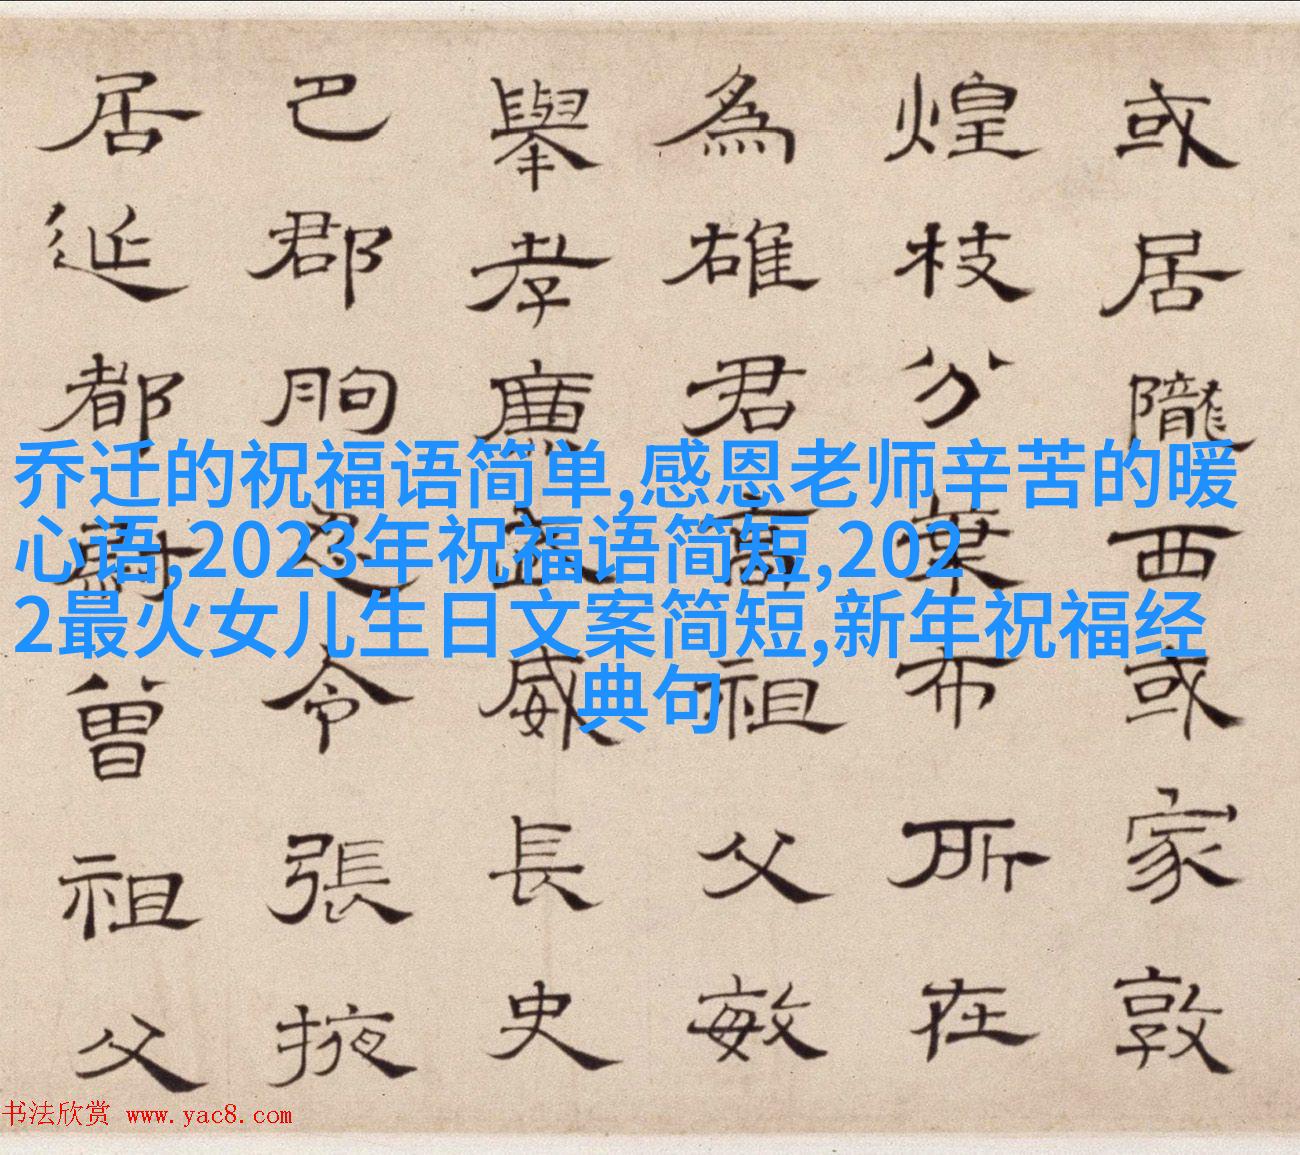 或居隴西或家敦
煌枝分葉布所在
為雄君高祖父敏
舉孝廉武威長史
巴郡朐忍令張掖
居延都尉曾祖父
乔迁的祝福语简单,感恩老师辛苦的暖
心语,2023年祝福语简短,202
2最火女儿生日文案简短,新年祝福经
典句
书法欣赏 www.yac8.com